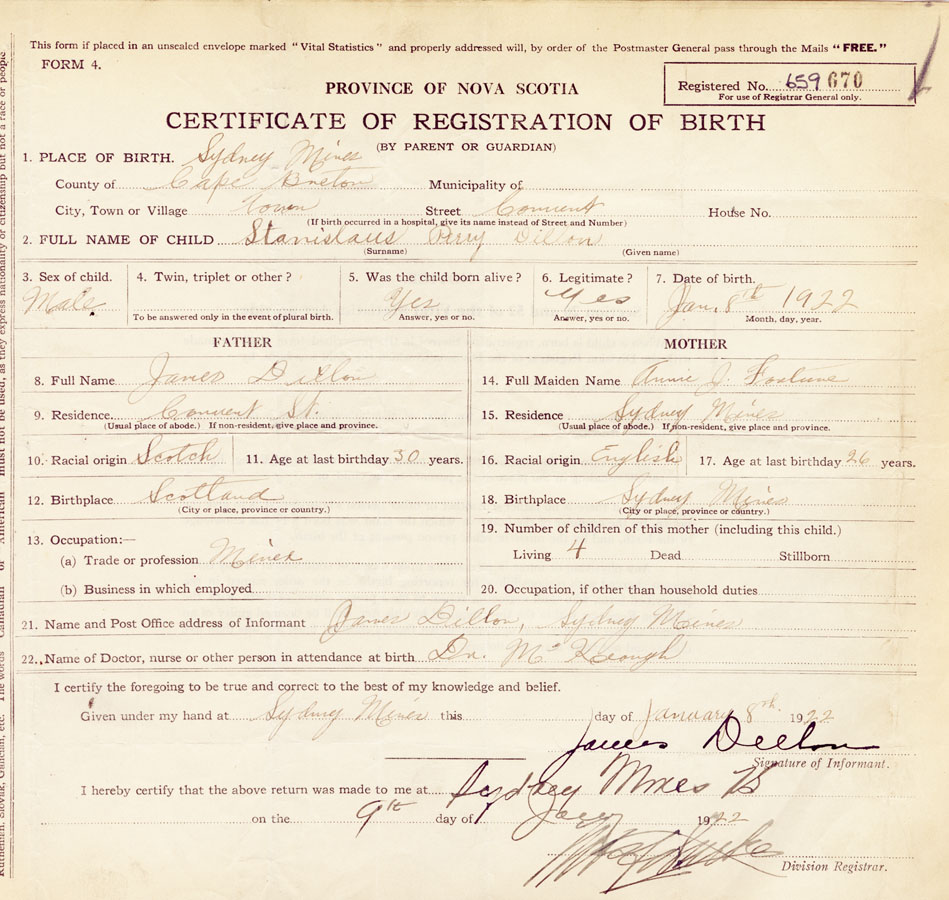 This form if placed in an unsealed envelope marked "Vital Statistics" and properly addressed will, by order of the Postmaster General pass through the Mails "FREE."
FORM 4.
Registered No. 659 670
For use of Registrar General only.
PROVINCE OF NOVA SCOTIA
CERTIFICATE OF REGISTRATION OF BIRTH
(BY PARENT OR GUARDIAN)
1. PLACE OF BIRTH. Sydney Mines
County of Cape Breton Municipality of
City, Town or Village Town Street Convent House No.
(If birth occurred in a hospital, give its name instead of Street and Number)
2. FULL NAME OF CHILD Stanislaus Perry Dillon
(Surname) (Given name)
3. Sex of child. 4. Twin, triplet or other? 5. Was the child born alive? 6. Legitimate? 7. Date of birth.
Male Yes Yes Jan. 8th 1922
To be answered only in the event of plural birth. Answer, yes or no. Answer, yes or no. Month, day, year.
FATHER MOTHER
8. Full Name James Dillon 14. Full Maiden Name Annie J. Fortune
9. Residence Convent St. 15. Residence Sydney Mines
(Usual place of abode.) If non-resident, give place and province. (Usual place of abode.) If non-resident, give place and province.
10. Racial origin Scotch 11. Age at last birthday 30 years. 16. Racial origin English 17. Age at last birthday 26 years.
12. Birthplace Scotland 18. Birthplace Sydney Mines
(City or place, province or country.) (City or place, province or country.)
13. Occupation:— 19. Number of children of this mother (including this child.)
(a) Trade or profession Miner Living 4 Dead Stillborn
(b) Business in which employed 20. Occupation, if other than household duties
21. Name and Post Office address of Informant James Dillon, Sydney Mines
22. Name of Doctor, nurse or other person in attendance at birth Dr. McKeough
I certify the foregoing to be true and correct to the best of my knowledge and belief.
Given under my hand at Sydney Mines this day of January 8th 1922
James Dillon
Signature of Informant.
I hereby certify that the above return was made to me at Sydney Mines
on the 9th day of 1922
Division Registrar.
Ruthenian, Slovak, Galician, etc. The words Canadian or American must not be used, as they express nationality or citizenship but not a race or people